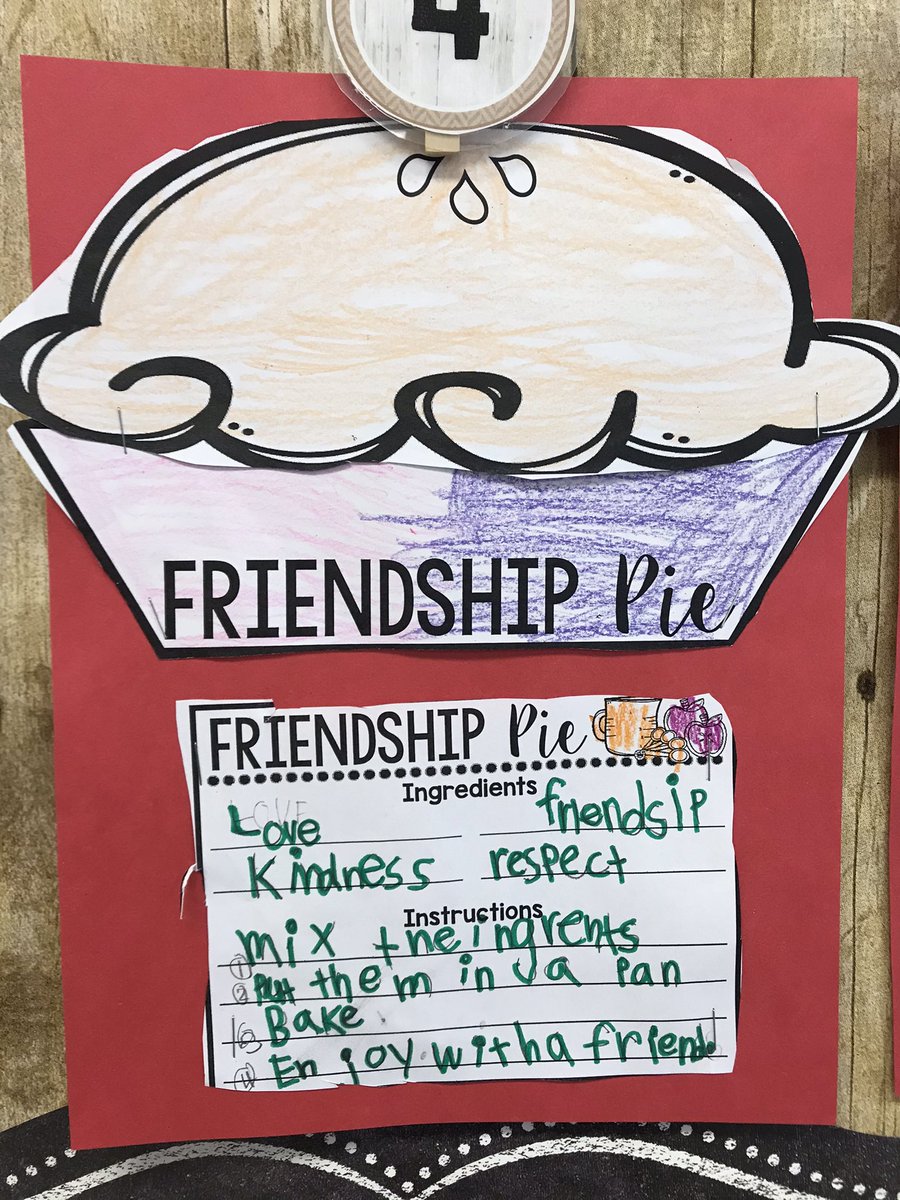 4
FRIENDSHIP Pie
FRIENDSHIP Pie
Ingredients
Love friendsip
Kindness respect
Instructions
① mix the ingrents
② Put them in a Pan
③ Bake
④ Enjoy with a friend.